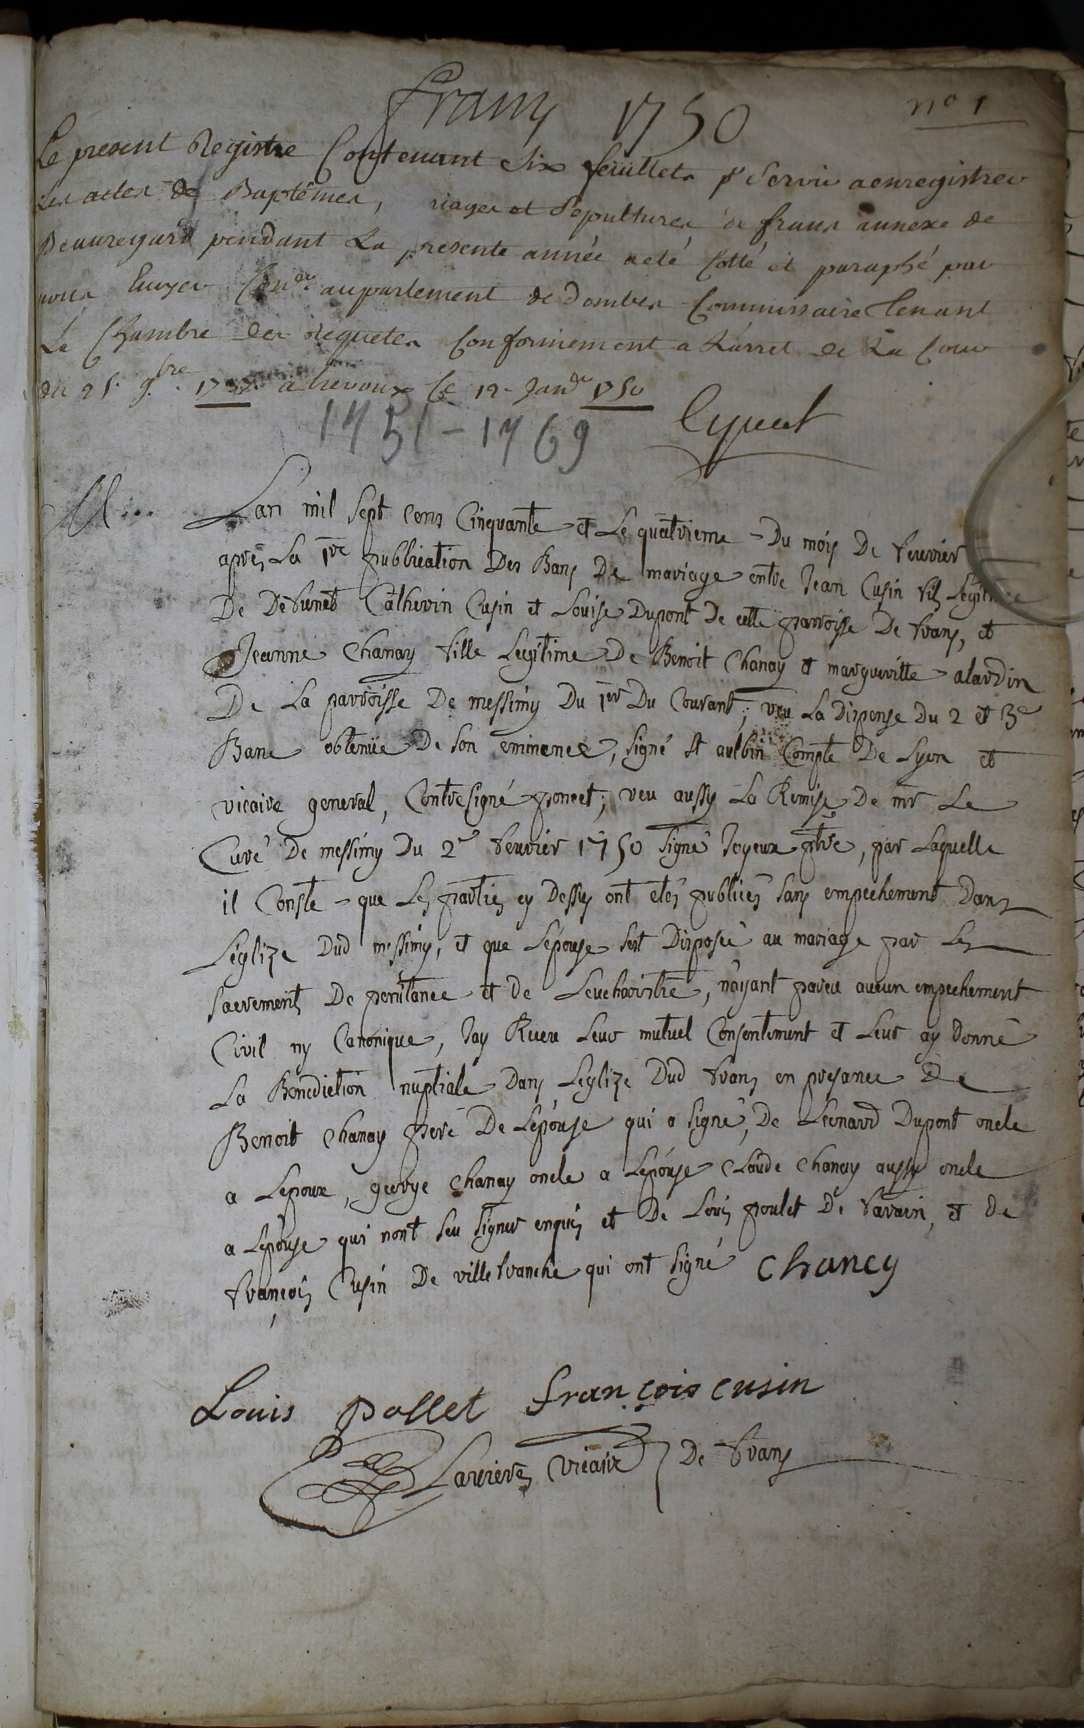 frans 1750 n° 1
Le present Registre Contenant Six feuillets pr Servir a enregistrer
les actes de Baptêmes, riages et Sepultures de frans annexe de
Beauregard pendant La presente année a eté Cotté et paraphé par
nous Ecuyer Coner au parlement de dombes Commissaire tenant
La Chambre des Requetes Conformement a L'arret de La Cour
du 25. 9bre. a trevoux Ce 12 Janer 1750
1751 - 1769
M
Lan mil sept cens Cinquante et Le quatrieme Du mois De fevrier
apres La 1re publication Des Bans De mariage entre Jean Cusin fils Legitime
De Defunts Catherin Cusin et Louise Dupont de cette parroisse De frans, et
Jeanne Chanay fille Legitime De Benoit Chanay et margueritte alardin
De La parroisse De messimy Du 1er Du Courant; veu La Dispense Du 2 et 3e
Banc obtenüe De Son eminence, signé St aulbin Compte De Lyon et
vicaire general, Contresigné poncet; veu aussy La Remise De mr Le
Curé De messimy Du 2e fevrier 1750 signé Joyeux ptre, par Laquelle
il Conste que Les parties cy Dessus ont etés publiées sans empechement Dans
Leglize Dud messimy, et que Lepouse sest Disposée au mariage par Les
sacrements De penitance et de Leucharistie, n'ayant paru aucun empechement
Civil ny Canonique, Jay Receu Leur mutuel Consentement et Leur ay Donné
La Benediction nuptiale Dans Leglize Dud frans en presance De
Benoit Chanay pere De Lepouse qui a signé, De Leonard Dupont oncle
a Lepoux, george Chanay oncle a Lepouse Claude Chanay aussy oncle
a Lepouse qui nont seu signer enquis et De Louis poulet De farein, et de
françois Cusin De villefranche qui ont signé Chancy
Louis pollet françois cusin
vicaire De frans